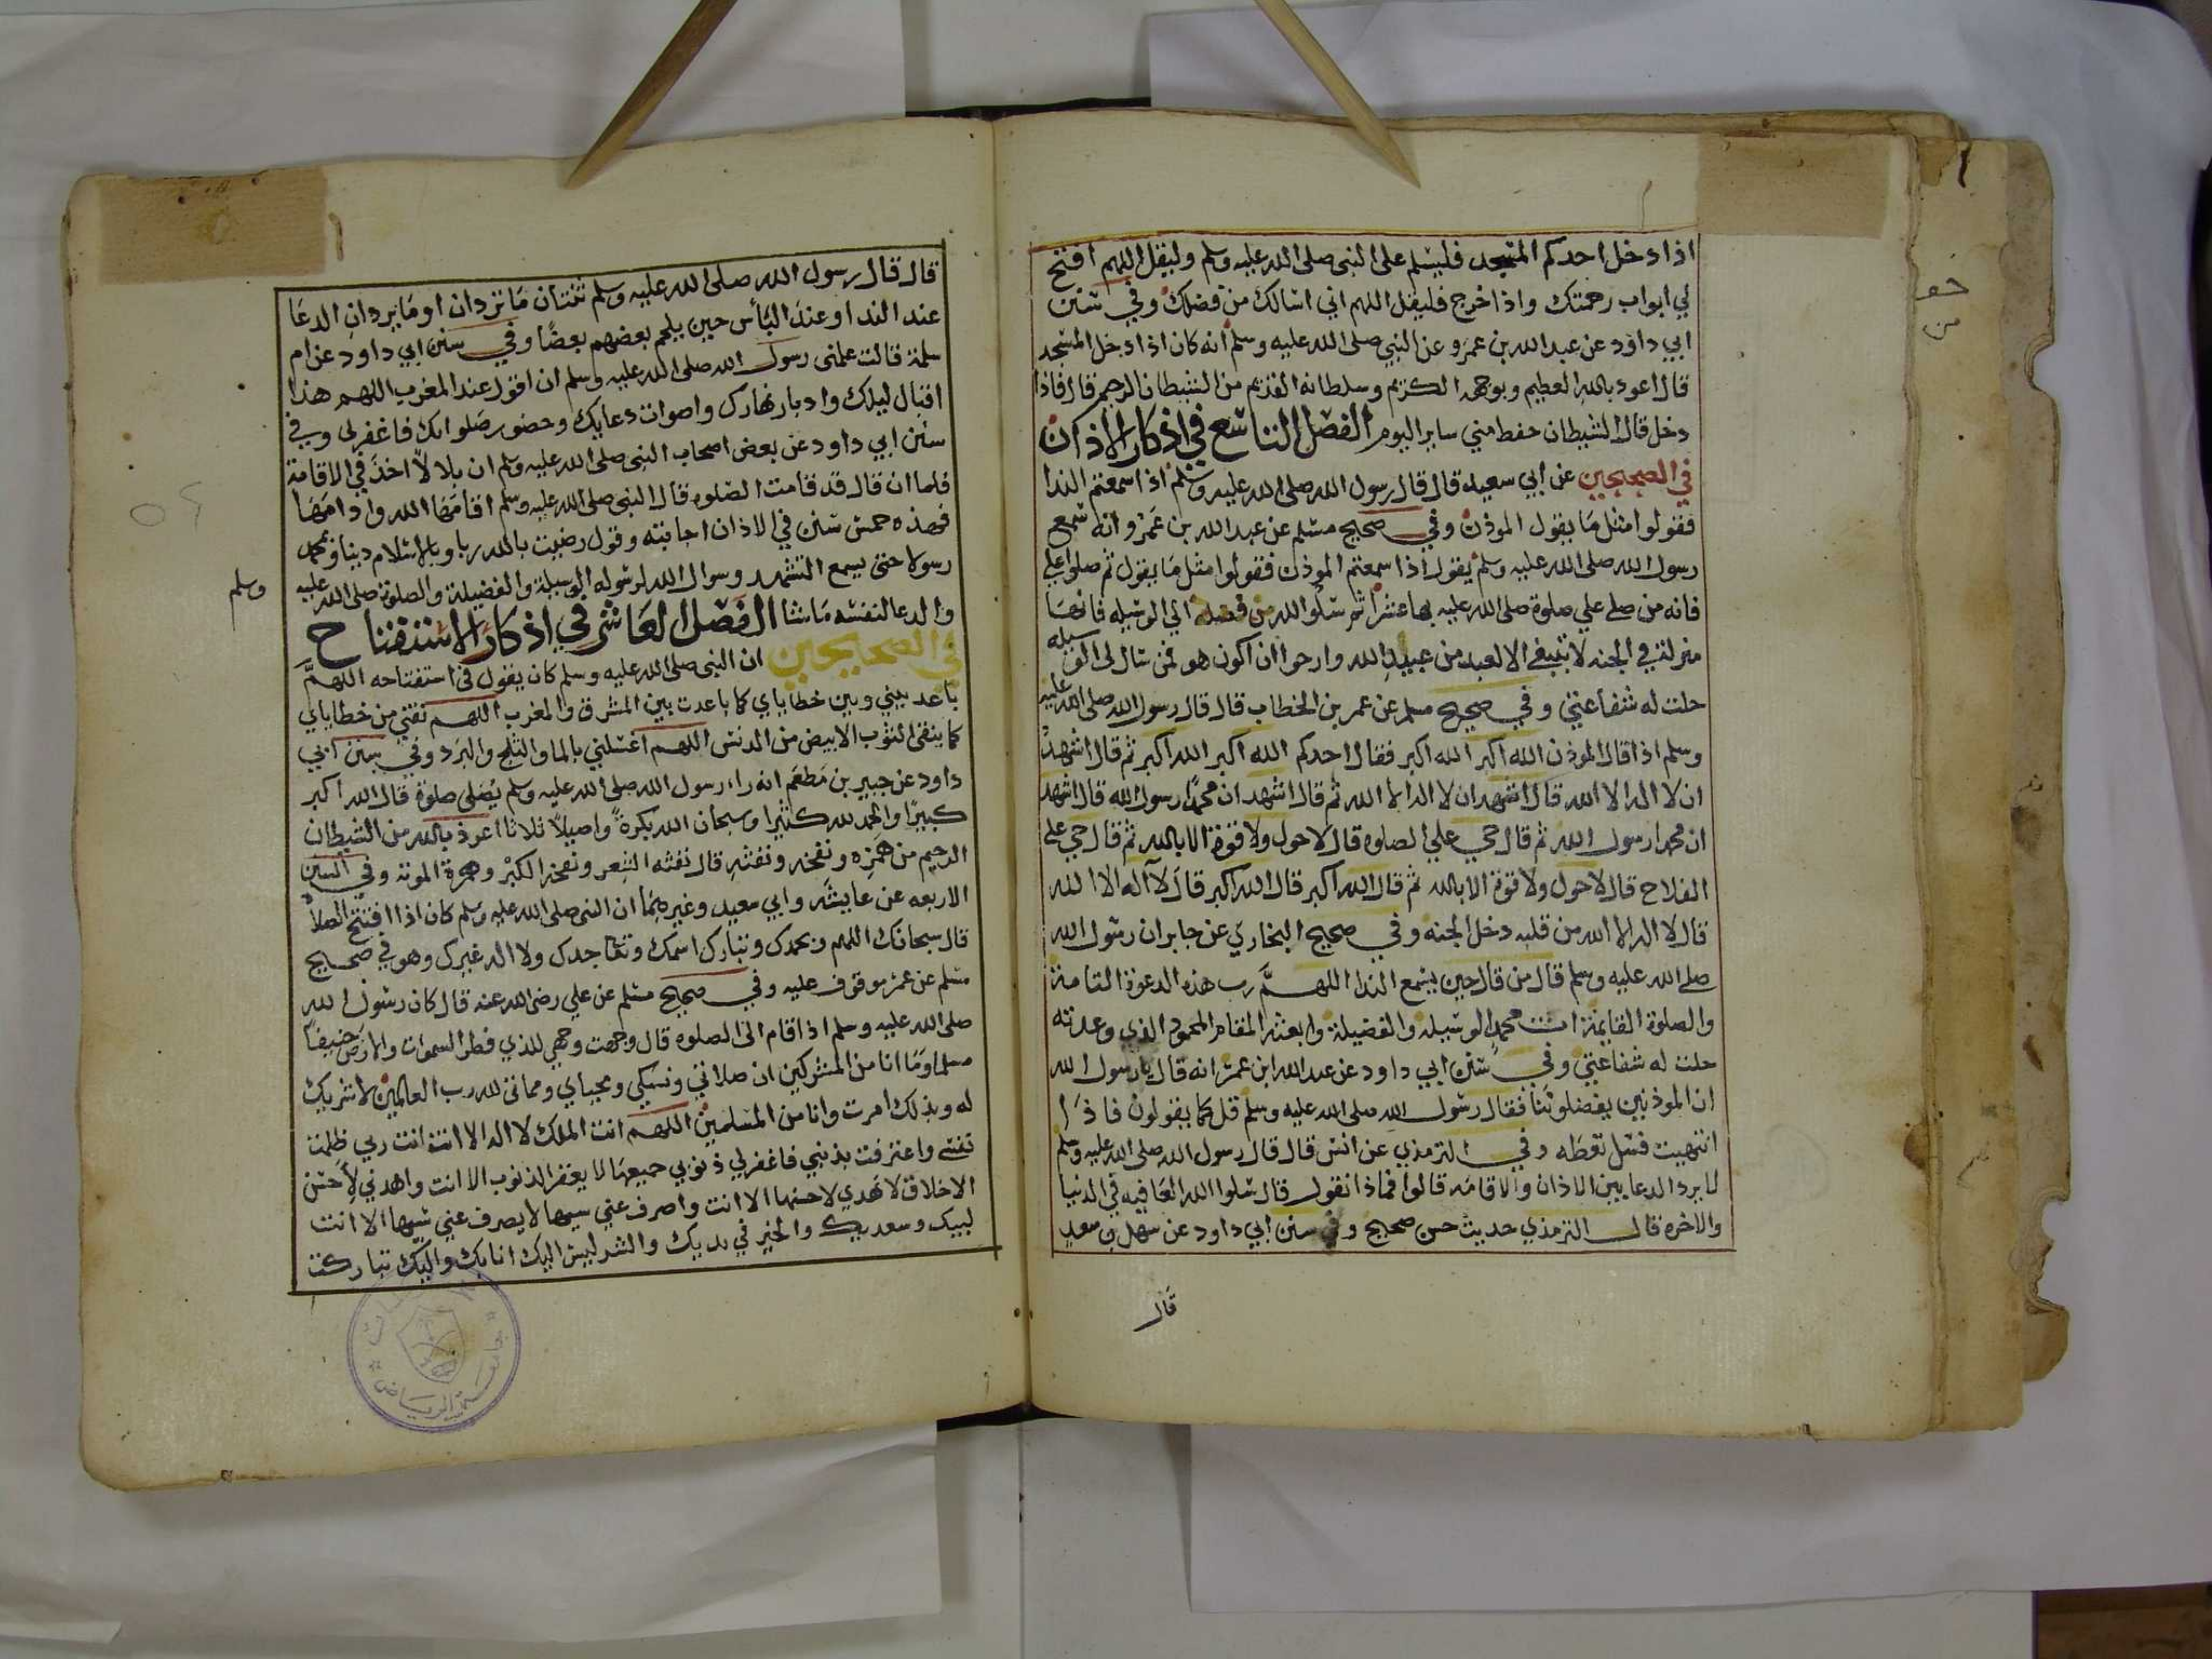 اذا دخل احدكم المسجد فليسلم على النبي صلى الله عليه وسلم وليقل اللهم افتح
لي ابواب رحمتك واذا خرج فليقل اللهم اني اسالك من فضلك وفي سنن
ابي داود عن عبد الله بن عمرو عن النبي صلى الله عليه وسلم انه كان اذا دخل المسجد
قال اعوذ بالله العظيم وبوجهه الكريم وسلطانه القديم من الشيطان الرجيم قال فاذا
دخل قال الشيطان حفظ مني ساير اليوم الفصل التاسع في اذكار الاذان
في الصحيحين عن ابي سعيد قال قال رسول الله صلى الله عليه وسلم اذا سمعتم الندا
فقولوا مثل ما يقول الموذن وفي صحيح مسلم عن عبد الله بن عمرو انه سمع
رسول الله صلى الله عليه وسلم يقول اذا سمعتم الموذن فقولوا مثل ما يقول ثم صلوا علي
فانه من صلى علي صلوة صلى الله عليه بها عشرا ثم سلوا الله لي الوسيله فانها
منزلة في الجنه لا تنبغي الا لعبد من عبيد الله وارجوا ان اكون هو فمن سال لي الوسيله
حلت له شفاعتي وفي صحيح مسلم عن عمر بن الخطاب قال قال رسول الله صلى الله عليه
وسلم اذا قال الموذن الله اكبر الله اكبر فقال احدكم الله اكبر الله اكبر ثم قال اشهد
ان لا اله الا الله قال اشهد ان لا اله الا الله ثم قال اشهد ان محمدا رسول الله قال اشهد
ان محمدا رسول الله ثم قال حي على الصلوه قال لا حول ولا قوة الا بالله ثم قال حي على
الفلاح قال لا حول ولا قوة الا بالله ثم قال الله اكبر قال الله اكبر قال لا اله الا الله
قال لا اله الا الله من قلبه دخل الجنه وفي صحيح البخاري عن جابر ان رسول الله
صلى الله عليه وسلم قال من قال حين يسمع الندا اللهم رب هذه الدعوة التامة
والصلوة القايمة ات محمدا الوسيله والفضيلة وابعثه المقام المحمود الذي وعدته
حلت له شفاعتي وفي سنن ابي داود عن عبد الله ابن عمر انه قال يا رسول الله
ان الموذنين يفضلوننا فقال رسول الله صلى الله عليه وسلم قل كما يقولون فاذا
انتهيت فسل تعطه وفي الترمذي عن انس قال قال رسول الله صلى الله عليه وسلم
لا يرد الدعا بين الاذان والاقامه قالوا فماذا نقول قال سلوا الله العافيه في الدنيا
والاخره قال الترمذي حديث حسن صحيح وفي سنن ابي داود عن سهل بن سعد
قال
قال قال رسول الله صلى الله عليه وسلم ثنتان ما تردان او ما يردان الدعا
عند الندا وعند البأس حين يلحم بعضهم بعضا وفي سنن ابي داود عن ام
سلمة قالت علمني رسول الله صلى الله عليه وسلم ان اقول عند المغرب اللهم هذا
اقبال ليلك وادبار نهارك واصوات دعايك وحضور صلواتك فاغفر لي وفي
سنن ابي داود عن بعض اصحاب النبي صلى الله عليه وسلم ان بلالا اخذ في الاقامة
فلما ان قال قد قامت الصلوه قال النبي صلى الله عليه وسلم اقامها الله وادامها
فهذه خمس سنن في الاذان اجابته وقول رضيت بالله ربا وبالاسلام دينا وبمحمد
رسولا حتى يسمع التشهد وسوال الله لرسوله الوسيلة والفضيلة والصلوة صلى الله عليه وسلم
والدعا لنفسه ما شا الفصل العاشر في اذكار الاستفتاح
في الصحيحين ان النبي صلى الله عليه وسلم كان يقول في استفتاحه اللهم
باعد بيني وبين خطاياي كما باعدت بين المشرق والمغرب اللهم نقني من خطاياي
كما ينقى الثوب الابيض من الدنس اللهم اغسلني بالما والثلج والبرد وفي سنن ابي
داود عن جبير بن مطعم انه راى رسول الله صلى الله عليه وسلم يصلي صلوة قال الله اكبر
كبيرا والحمد لله كثيرا وسبحان الله بكرة واصيلا ثلاثا اعوذ بالله من الشيطان
الرجيم من همزه ونفخه ونفثه قال نفثه الشعر ونفخه الكبر وهمزة الموتة وفي السنن
الاربعه عن عايشه وابي سعيد وغيرهما ان النبي صلى الله عليه وسلم كان اذا افتتح الصلاة
قال سبحانك اللهم وبحمدك وتبارك اسمك وتعا جدك ولا اله غيرك وهو في صحيح
مسلم عن عمر موقوف عليه وفي صحيح مسلم عن علي رضي الله عنه قال كان رسول الله
صلى الله عليه وسلم اذا قام الى الصلوه قال وجهت وجهي للذي فطر السموات والارض حنيفا
مسلما وما انا من المشركين ان صلاتي ونسكي ومحياي ومماتي لله رب العالمين لا شريك
له وبذلك امرت وانا من المسلمين اللهم انت الملك لا اله الا انت انت ربي ظلمت
نفسي واعترفت بذنبي فاغفر لي ذنوبي جميعها لا يغفر الذنوب الا انت واهدني لاحسن
الاخلاق لا يهدي لاحسنها الا انت واصرف عني سيها لا يصرف عني سيها الا انت
لبيك وسعديك والخير في يديك والشر ليس اليك انا بك واليك تباركت
جامعة الرياض